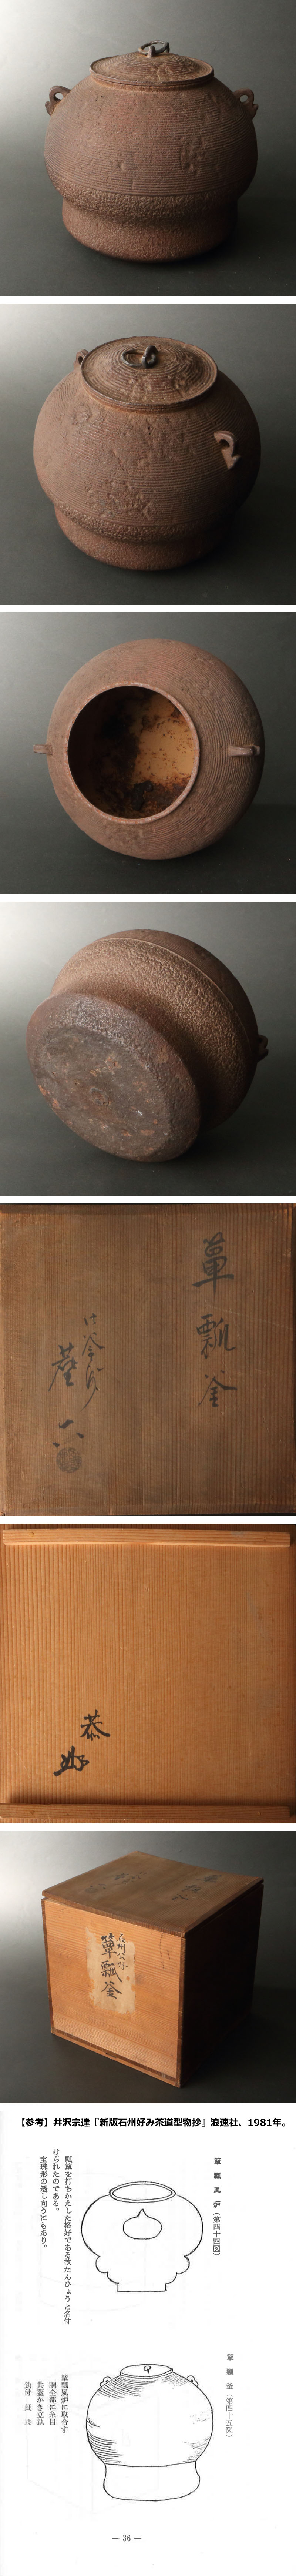 箪瓢釜
御釜師
恭
石州公好
箪瓢釜
【参考】井沢宗達『新版石州好み茶道型物抄』浪速社、1981年。
箪瓢風炉(第四十四図)
瓢箪を打ちかえした格好である故たんひょうと名付
けられたのである。
宝珠形の透し向うにもあり。
箪瓢釜(第四十五図)
箪瓢風炉に取合す
胴全部に糸目
共蓋かき立鐶
― 36 ―